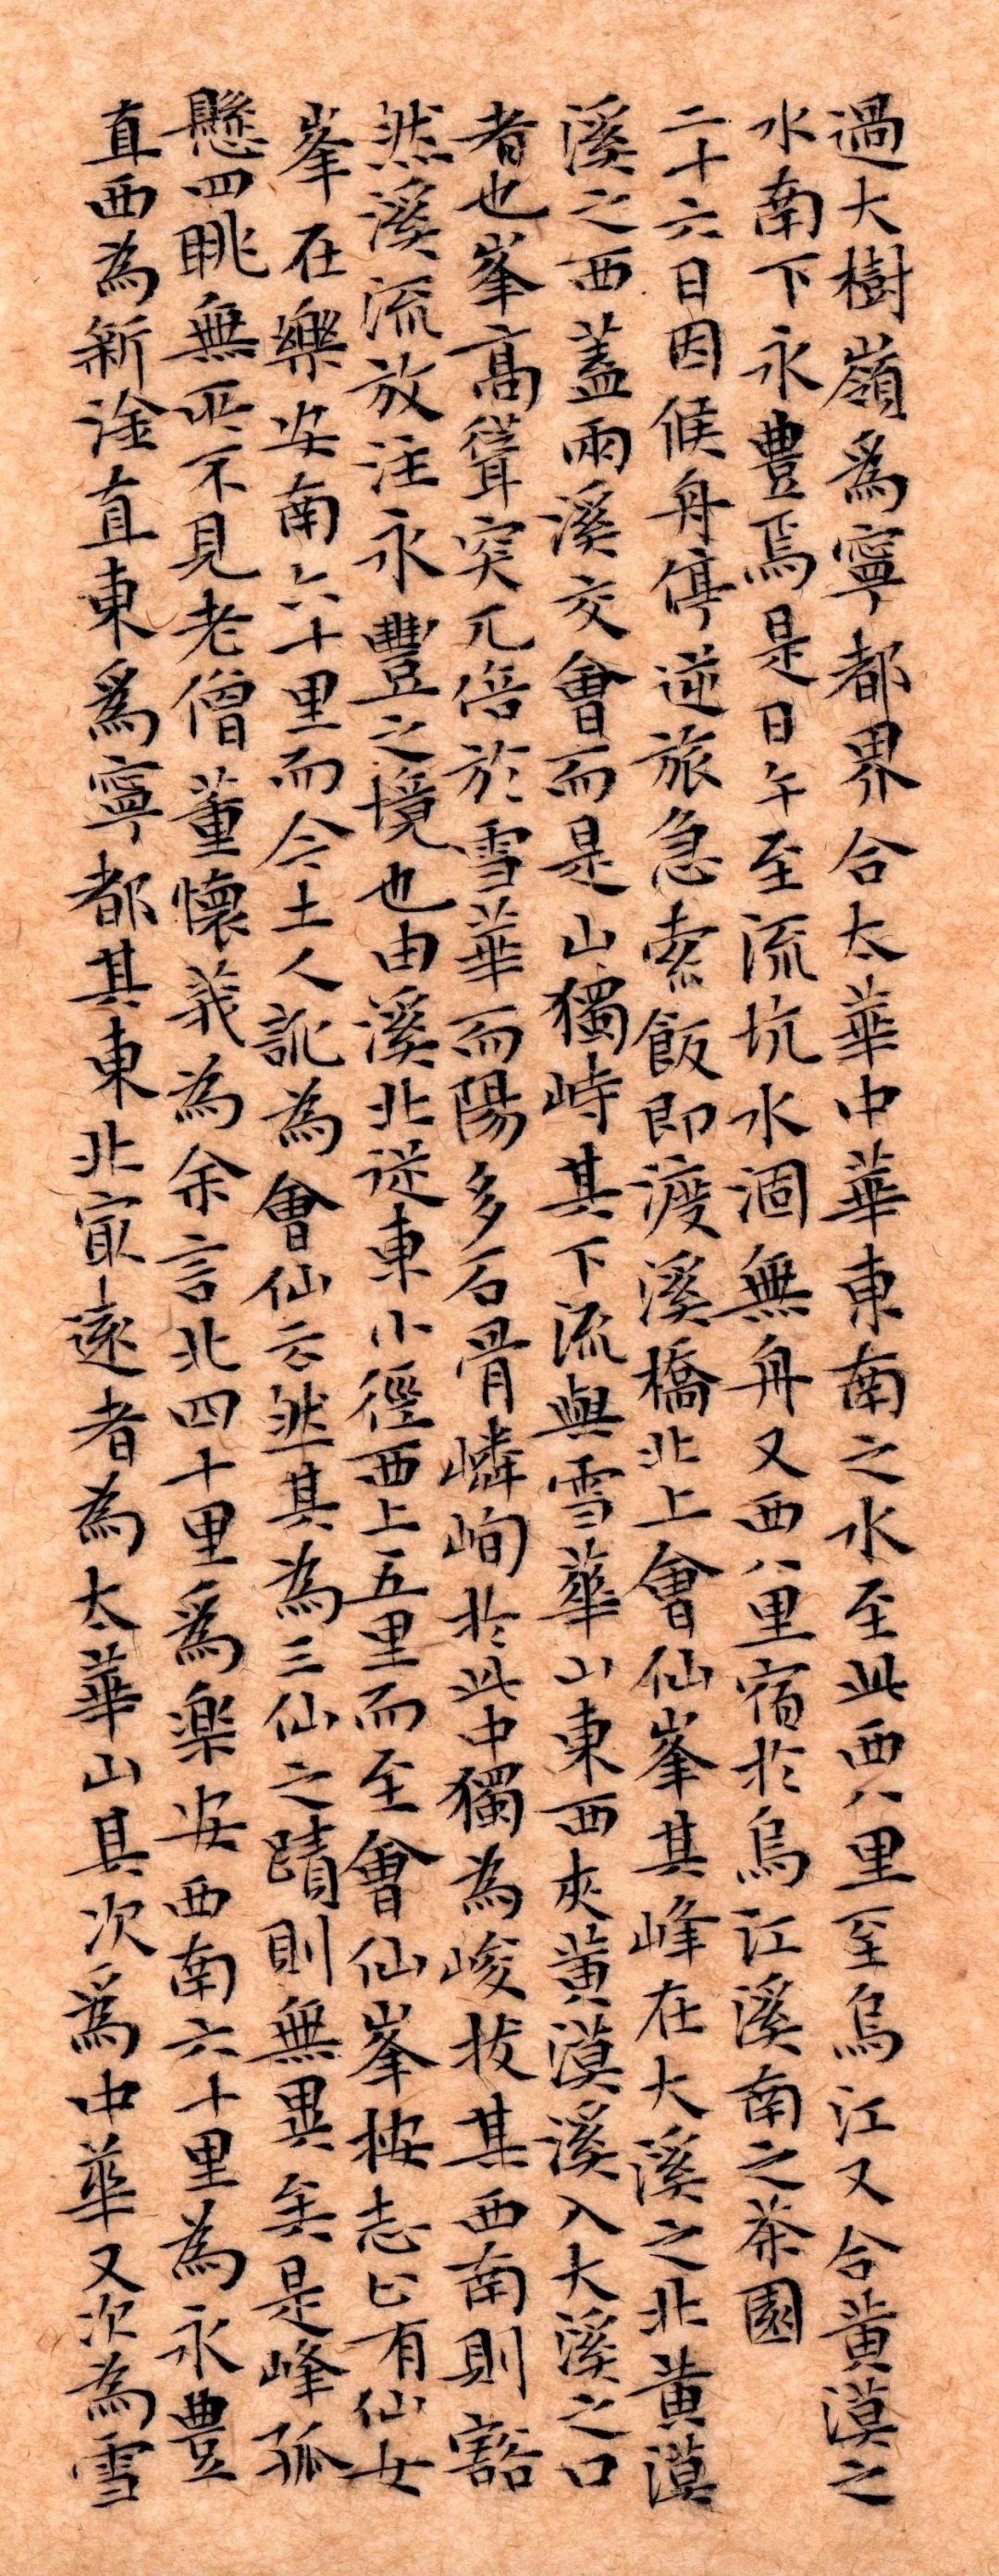 過大樹嶺為寧都界合太華中華東南之水至此西八里至烏江又合黃漠之
水南下永豊焉是日午至流坑水涸無舟又西八里宿於烏江溪南之茶園
二十六日因候舟停逆旅急索飯即渡溪橋北上會仙峯其峰在大溪之北黃漠
溪之西蓋兩溪交會而是山獨峙其下流與雪華山東西夾黃漠溪入大溪之口
者也峯高聳突兀倍於雪華而陽多石骨嶙峋於此中獨為峻拔其西南則豁
然溪流放注永豐之境也由溪北從東小徑西上五里而至會仙峯按志止有仙女
峯在樂安南六十里而今土人訛為會仙云然其為三仙之蹟則無異矣是峰孤
懸四眺無所不見老僧董懷莪為余言北四十里為楽安西南六十里為永豊
直西為新淦直東為寧都其東北最遠者為太華山其次為中華又次為雪